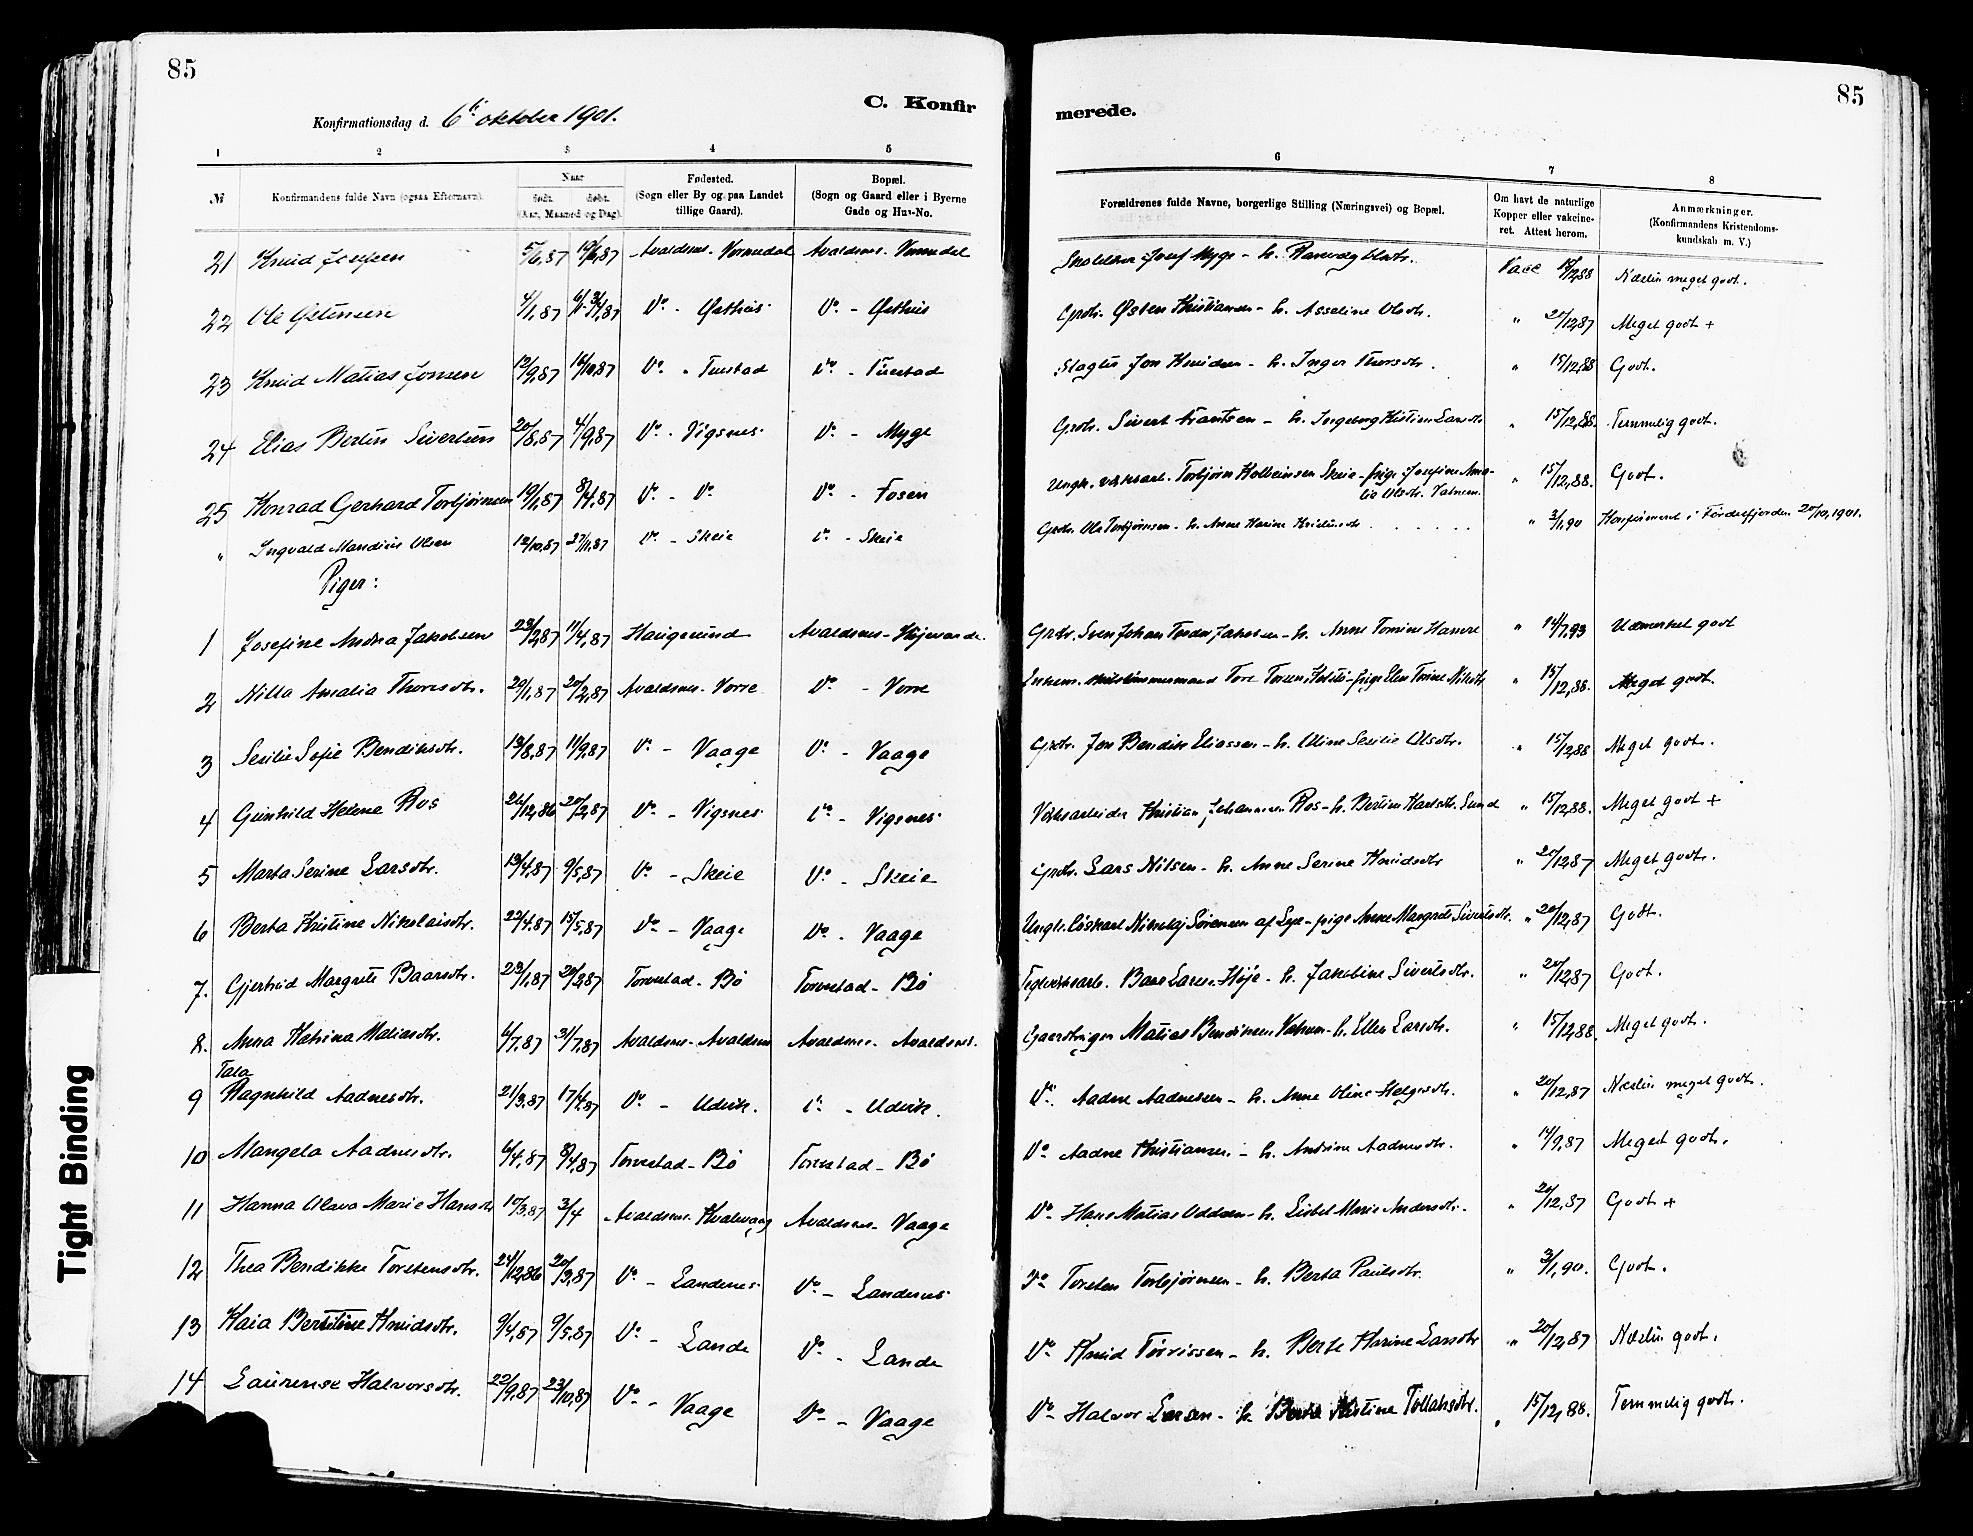 85
85
C. Konfir
merede.
Konfirmationsdag d. 6te oktober 1901.
1 2 3 4 5 6 7 8
№ Konfirmandens fulde Navn (ogsaa Efternavn). Naar født. døbt. (Aar, Maaned og Dag). Fødested. (Sogn eller By og paa Landet tillige Gaard). Bopæl. (Sogn og Gaard eller i Byerne Gade og Hus-No. Forældrenes fulde Navne, borgerlige Stilling (Næringsvei) og Bopæl. Om havt de naturlige Kopper eller vakcineret. Attest herom. Anmærkninger. (Konfirmandens Kristendomskundskab m. V.)
21 Knud 5/6,87 19/6,87 Avaldsnes - Vormedal Avaldsnes - Vormedal Josef Myge - h. Vacc 12,88 Næsten meget godt.
22 Ole Østensen 4/1,87 Do - Østhus Do - Østhus Grdbr. Østen Kristiansen - h. Asseline Olsdtr. " 20/12,87 Meget godt +
23 Knud Matias Jonsen 12/9,87 16/10,87 Do - Tuestad Do - Tuestad Slagter Jon Knudsen - h. Inger Thorsdtr. " 15/12,88 Godt.
24 Elias Bertin Sivertsen 20/8,87 4/9,87 Do - Vigsnes Do - Myge Grdbr. Sivert Frantsen - h. Ingeborg Kristine Larsdtr " 15/12,88. Temmelig godt.
25 Konrad Gerhard Torbjørnsen 19/1,87 8/4,87 Do - Do Do - Fosen Ungk. Torbjørn Kolbeinsen Skeie - pige Josefine Ama-
lie Olsdtr. Vatnem. " 15/12,88. Godt.
" Ingvald Mandius Olsen 12/10,87 27/11,87 Do - Skeie Do - Skeie Grdbr. Ole Torbjørnsen - h. Anne Karine " 3/1,90 Konfirmeret i Førdesfjorden 20/10,1901.
Piger:
1 Josefine Andrea Jakobsen 23/2,87 11/4,87 Haugesund Avaldsnes - Grdbr. Sven Johan Jakobsen - h. Anne Tomine Hamre " 14/7,93 Udmerket godt
2 Nilla Amalia Thoresdtr. 20/1,87 20/2,87 Avaldsnes - Vorre Do - Vorre Enkem. Tore Toresen pige Elen Torine " 15/12,88. Meget godt.
3 Sesilie Sofie Bendiksdtr. 13/8,87 11/9,87 Do - Vaage Do - Vaage Grdbr. Jon Bendik Eliassen - h. Oline Sesilie Olsdtr. " 15/12,88 Meget godt.
4 Gunhild Helene Ros 26/12,86 20/2,87 Do - Vigsnes Do - Vigsnes Verksarbeider Kristian Johannesen Ros - h. Bertine Sund " 15/12,88. Meget godt +
5 Marta Serine Larsdtr. 13/4,87 9/5,87 Do - Skeie Do - Skeie Grdbr. Lars Nilsen - h. Anne Serine Knudsdtr " 20/12,87 Meget godt.
6 Berta Kristine Nikolaisdtr. 22/4,87 15/5,87 Do - Vaage Do - Vaage Ungk. Løskarl Nikolaj Sørensen af - pige Anne Margrete Sivertsdtr. " 20/12,87 Godt.
7. Gjertrud Margrete Baarsdtr. 23/1,87 20/2,87 Torvestad - Bø Torvestad - Bø Teglverksarb. Baar Larsen Høje - h. Jakobine Sivertsdtr. " 20/12,87 Godt.
8. Anna Katrina Matiasdtr. 6/7,87 31/7,87 Avaldsnes - Avaldsnes Avaldsnes - Avaldsnes. Gaardbruger Matias Bendiksen - h. Ellen Larsdtr. " 15/12,88 Meget godt.
Tala
9 Ragnhild Aadnesdtr. 21/3,87 17/4,87 Do - Utvik. Do - Utvik. Do. Aadne Aadnessen - h. Anne Oline Helgesdtr. " 20/12,87 Næsten meget godt.
10 Mangela Aadnesdtr. 6/4,87 8/4,87 Torvestad - Bø Torvestad - Bø Do Aadne Kristiansen - h. Andrine Aadnesdtr. " 14/9,87 Meget godt.
11 Hanna Olava Marie Hansdtr 10/3,87 3/4 Avaldsnes - Kvalevaag Avaldsnes - Vaage Do - Hans Matias - h. Lisbet Marie Andersdtr. " 20/12,87 Godt +
12 Thea Bendikke Torstensdtr. 24/12,86 20/3,87 Do - Landenes Do - Landenes Do Torsten Torbjørnsen - h. Berta Paulsdtr. " 3/1,90. Godt.
13 Kaia Bertine Knudsdtr. 9/4,87 9/5,87 Do - Lande Do - Lande Do Knud Torrissen - h. Berte Karine Larsdtr " 20/12,87 Næsten godt.
14 Laurense Halvorsdtr. 22/9,87 23/10,87 Do - Vaage Do - Vaage Do Halvor Larsen - h. Berte Kristine Tollaksdtr. " 15/12,88. Temmelig godt.
Tight Binding